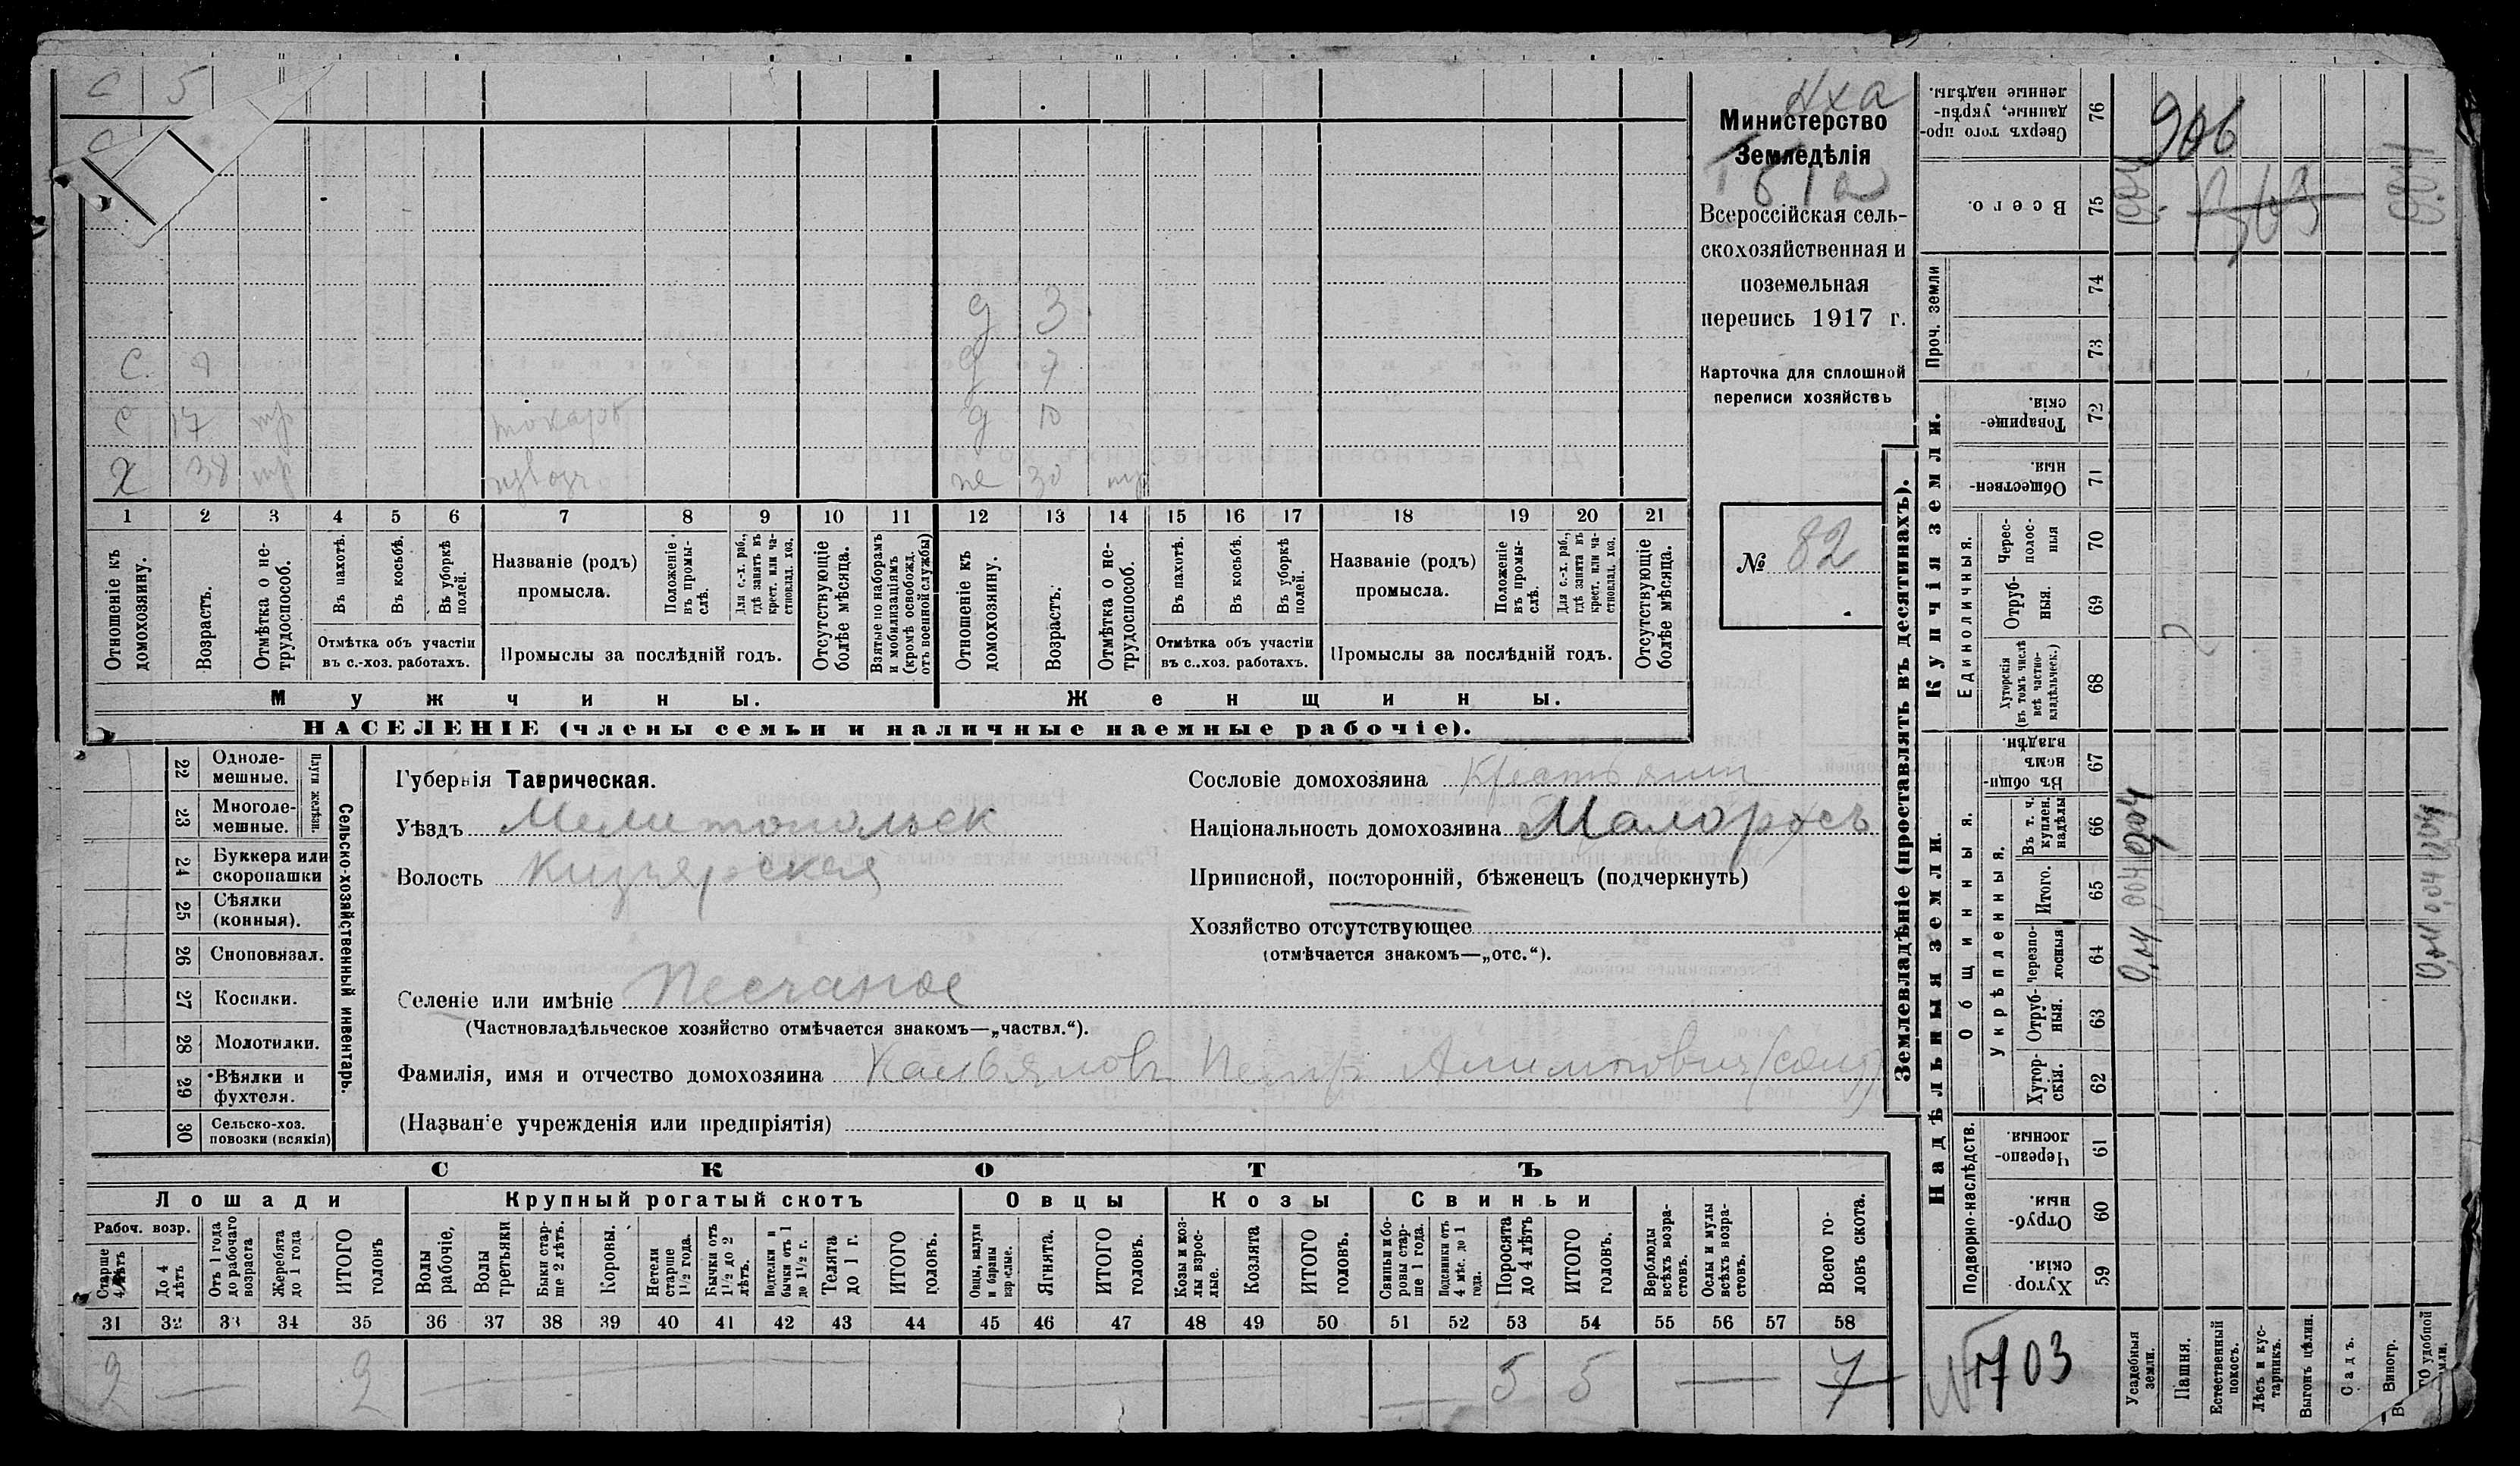 с 5
с
д 3
с. 7 д 7
с 17 тр токарь д 10
х 38 тр извозч не 30 тр
1 2 3 4 5 6 7 8 9 10 11 12 13 14 15 16 17 18 19 20 21
Отношеніе къ домохозяину.
Возрастъ.
Отмѣтка о нетрудоспособ.
Въ пахотѣ.
Въ косьбѣ.
Въ уборкѣ полей.
Отмѣтка объ участіи въ с.-хоз. работахъ.
Названіе (родъ) промысла.
Положеніе въ промыслѣ.
Для с.-х. раб., гдѣ занятъ въ крест. или частновлад. хоз.
Промыслы за послѣдній годъ.
Отсутствующіе болѣе мѣсяца.
Взятые по наборамъ и мобилизаціямъ (кромѣ освобожд. отъ военной службы)
Отношеніе къ домохозяину.
Возрастъ.
Отмѣтка о нетрудоспособ.
Въ пахотѣ.
Въ косьбѣ.
Въ уборкѣ полей.
Отмѣтка объ участіи въ с..хоз. работахъ.
Названіе (родъ) промысла.
Положеніе въ промыслѣ.
Для с.-х. раб., гдѣ занята въ крест. или частновлад. хоз.
Промыслы за послѣдній годъ.
Отсутствующіе болѣе мѣсяца.
Мужчины.
Женщины.
НАСЕЛЕНІЕ (члены семьи и наличные наемные рабочіе).
Министерство
Земледѣлія
Всероссійская сель-
скохозяйственная и
поземельная
перепись 1917 г.
Карточка для сплошной
переписи хозяйствъ
№ 82
22 Однолемешные.
23 Многолемешные.
Плуги желѣзн.
24 Буккера или скоропашки
25 Сѣялки (конныя).
26 Сноповязал.
27 Косилки.
28 Молотилки.
29 Вѣялки и фухтеля.
30 Сельско-хоз. повозки (всякія)
Сельско-хозяйственный инвентарь.
Губернія Таврическая.
Уѣздъ Мелитопольск
Волость Кизіярская
Сословіе домохозяина Крестьянин
Національность домохозяина Малороссъ
Приписной, посторонній, бѣженецъ (подчеркнуть)
Хозяйство отсутствующее
(отмѣчается знакомъ—„отс.“).
Селеніе или имѣніе Песчаное
(Частновладѣльческое хозяйство отмѣчается знакомъ—„частвл.“).
Фамилія, имя и отчество домохозяина Петр
(Названіе учрежденія или предпріятія)
СКОТЪ
Лошади Крупный рогатый скотъ Овцы Козы Свиньи
Рабоч. возр.
Старше 4 лѣтъ
До 4 лѣтъ
Отъ 1 года до рабочаго возраста
Жеребята до 1 года
ИТОГО головъ
Волы рабочіе,
Волы третьяки
Быки старше 2 лѣтъ.
Коровы.
Нетели старше 1½ года.
Бычки отъ 1½ до 2 лѣтъ.
Подтелки и бычки отъ 1 до 1½ г.
Телята до 1 г.
ИТОГО головъ.
Овцы, валухи и бараны взрослые.
Ягнята.
ИТОГО головъ.
Козы и козлы взрослые.
Козлята
ИТОГО головъ.
Свиньи и боровы старше 1 года.
Подсвинки отъ 4 мѣс. до 1 года.
Поросята до 4 лѣтъ
ИТОГО головъ.
Верблюды всѣхъ возрастовъ.
Ослы и мулы всѣхъ возрастовъ.
Всего головъ скота.
31 32 33 34 35 36 37 38 39 40 41 42 43 44 45 46 47 48 49 50 51 52 53 54 55 56 57 58
2 — 2 — — — 5 5 — 7
Землевладѣніе (проставлять въ десятинахъ).
Сверхъ того проданные, укрѣпленные надѣлы. 76
Всего. 75
Проч. земли 74 73
Купчія земли.
Товарищескія. 72
Общественныя. 71
Единоличныя.
Чересполосныя 70
Отрубныя. 69
Хуторскія (въ томъ числѣ всѣ частновладѣльческ.) 68
Надѣльныя земли.
Общинныя.
Въ общинномъ владѣн. 67
Укрѣпленныя.
Въ т. ч. куплен. надѣлы 66
Итого. 65
Черезполосныя 64
Отрубныя. 63
Хуторскія. 62
Подворно-наслѣдств.
Черезполосныя. 61
Отрубныя. 60
Хуторскія. 59
906
0,04 0,04 0,04
0,04 0,04 0,04
№ 1703
Усадебныя земли.
Пашня.
Естественный покосъ.
Лѣсъ и кустарникъ.
Выгонъ цѣлин.
Садъ.
Виногр.
удобной